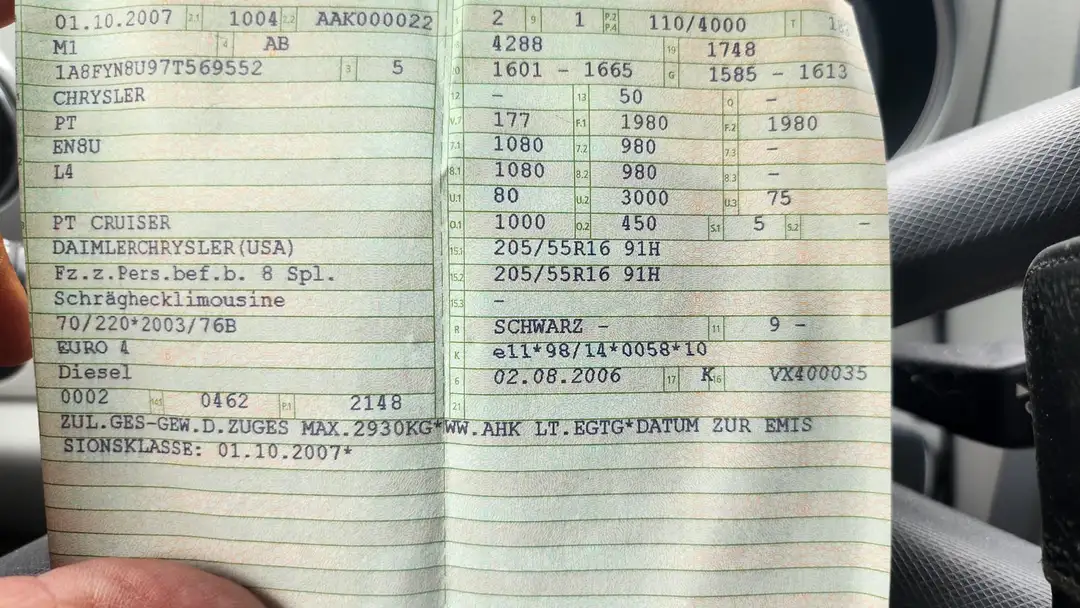 01.10.2007 2.1 1004 2.2 AAK000022
M1 4 AB
1A8FYN8U97T569552 3 5
CHRYSLER
PT
EN8U
L4
PT CRUISER
DAIMLERCHRYSLER(USA)
Fz.z.Pers.bef.b. 8 Spl.
Schräghecklimousine
70/220*2003/76B
EURO 4
Diesel
0002 14.1 0462 P.1 2148
2 9 1 P.2 P.4 110/4000 T
4288 19 1748
1601 - 1665 G 1585 - 1613
12 - 13 50 Q -
V.7 177 F.1 1980 F.2 1980
7.1 1080 7.2 980 7.3 -
8.1 1080 8.2 980 8.3 -
U.1 80 U.2 3000 U.3 75
O.1 1000 O.2 450 S.1 5 S.2 -
15.1 205/55R16 91H
15.2 205/55R16 91H
15.3 -
R SCHWARZ - 11 9 -
K e11*98/14*0058*10
6 02.08.2006 17 K 16 VX400035
21
ZUL.GES-GEW.D.ZUGES MAX.2930KG*WW.AHK LT.EGTG*DATUM ZUR EMIS
SIONSKLASSE: 01.10.2007*